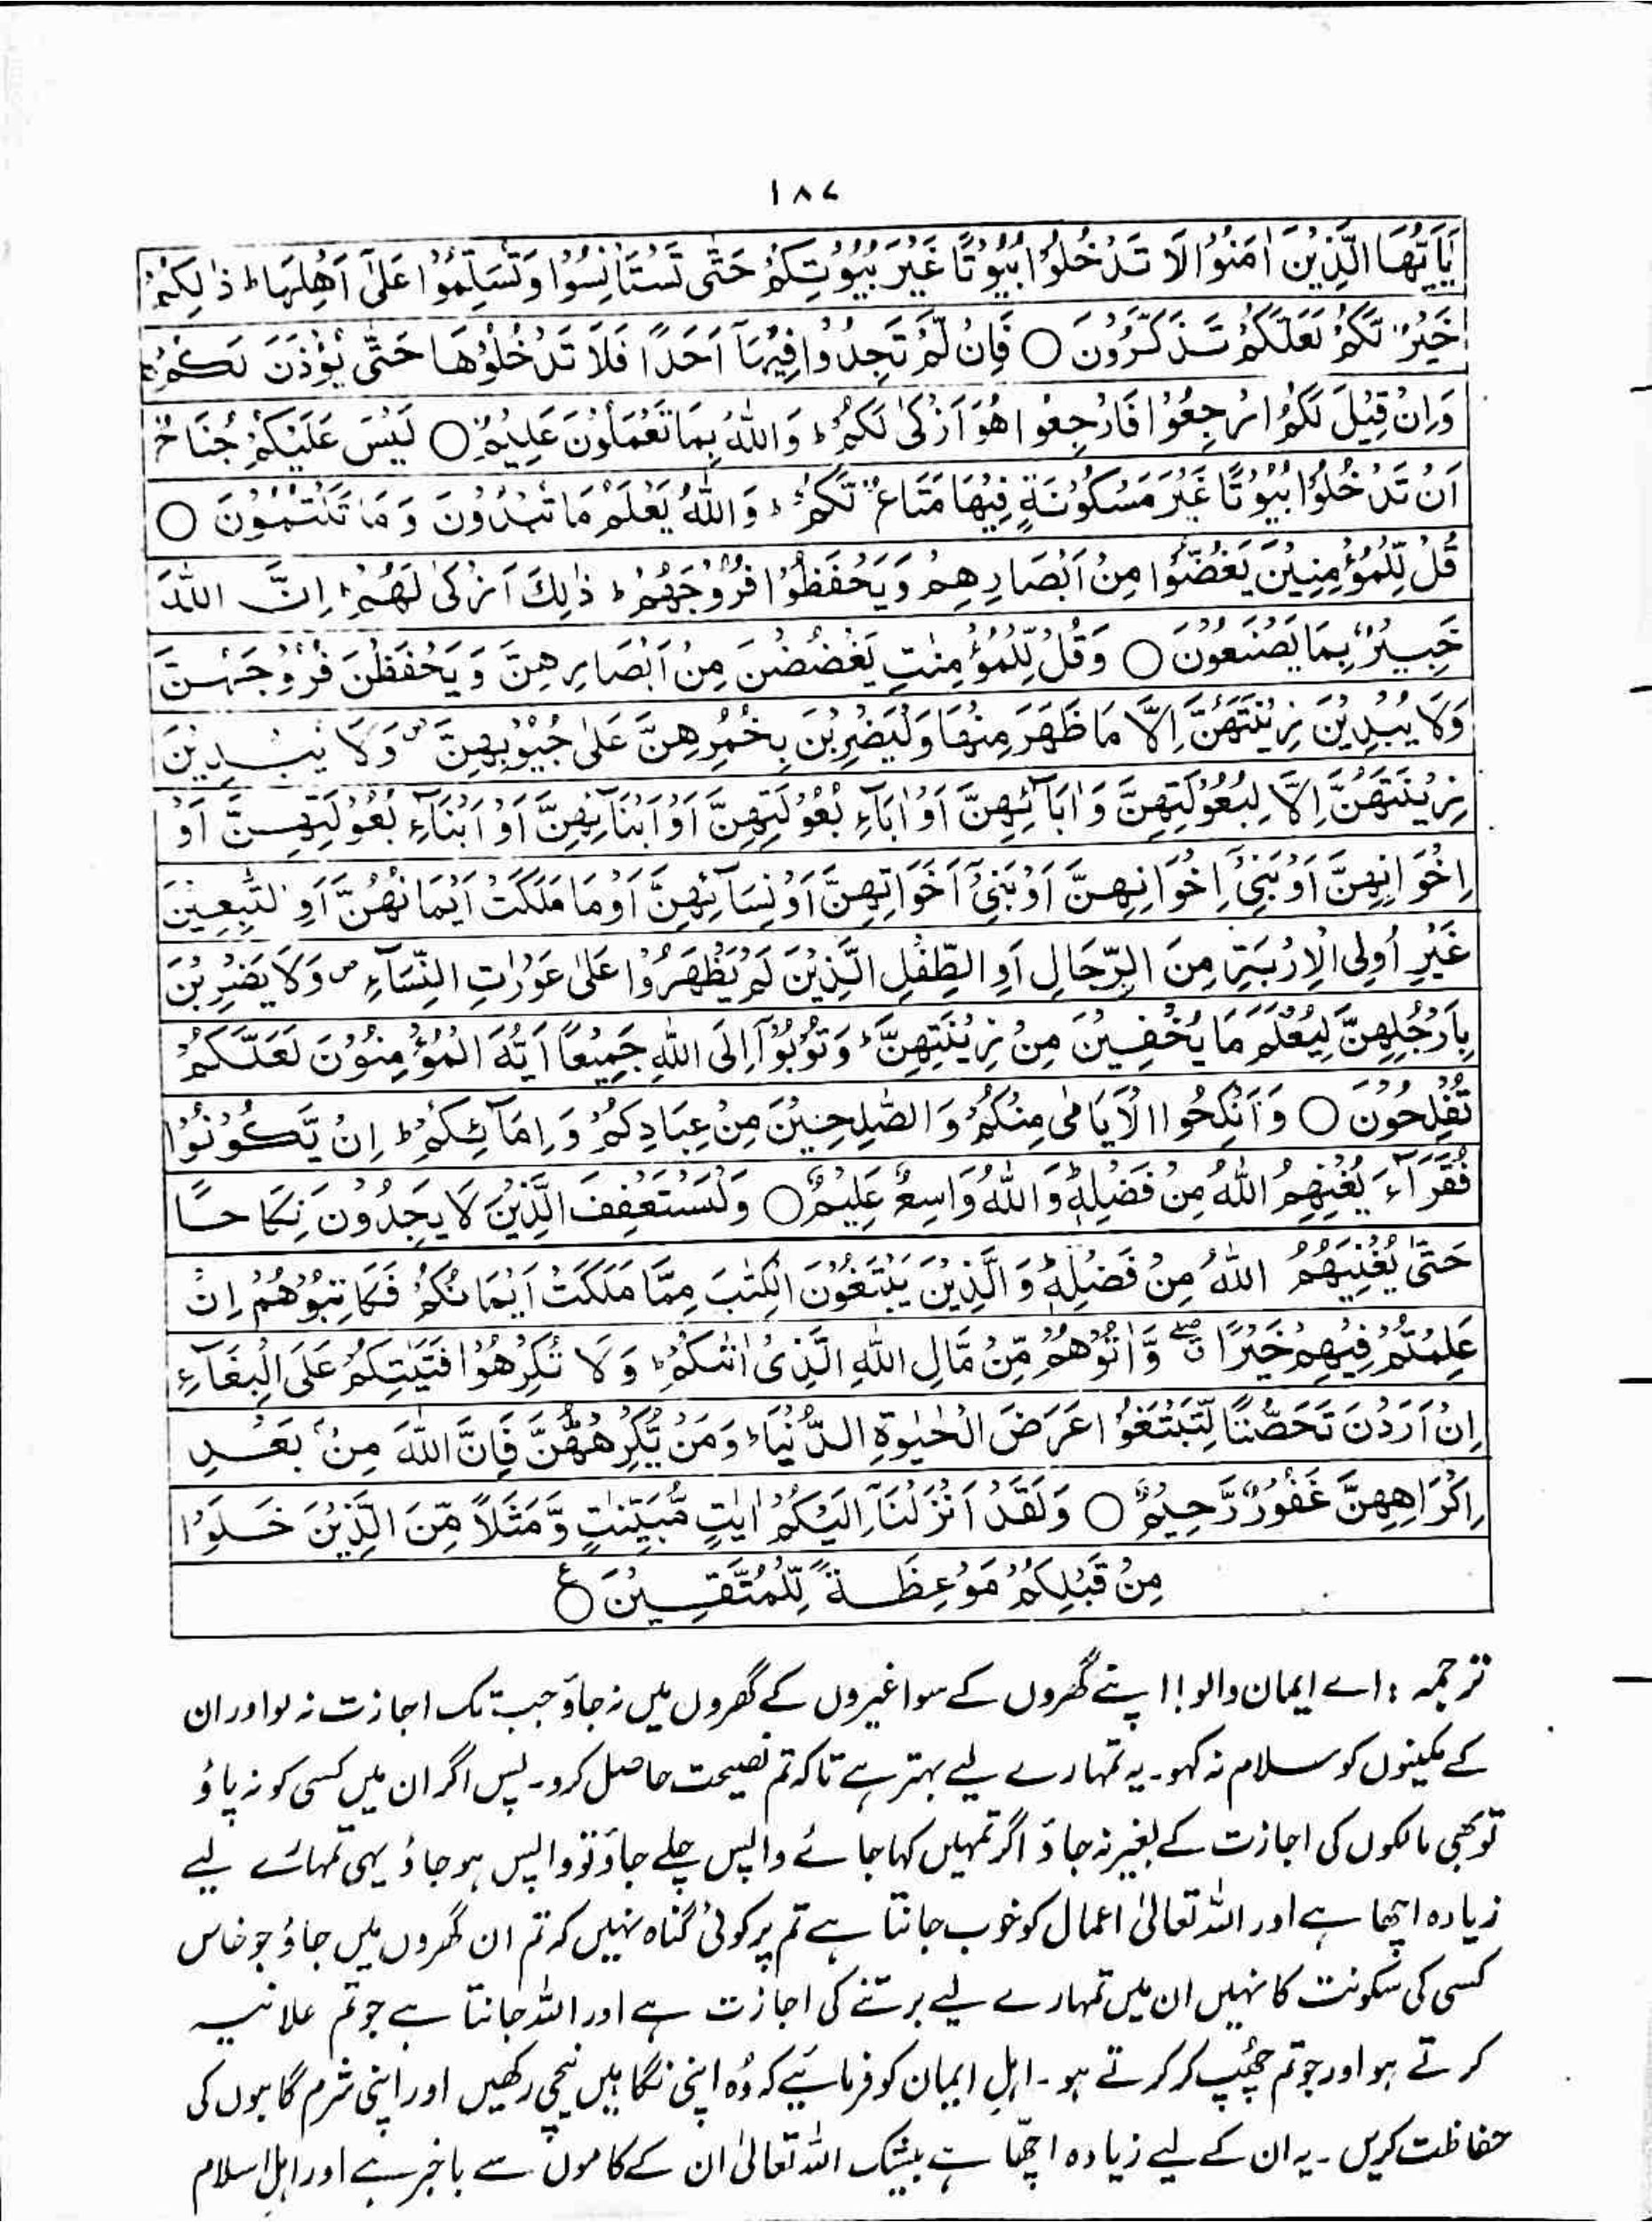 ۱۸۷
يٰٓاَيُّهَا الَّذِيْنَ اٰمَنُوْا لَا تَدْخُلُوْا بُيُوْتًا غَيْرَ بُيُوْتِكُمْ حَتّٰى تَسْتَاْنِسُوْا وَتُسَلِّمُوْا عَلٰٓى اَهْلِهَا ط ذٰلِكُمْ
خَيْرٌ لَّكُمْ لَعَلَّكُمْ تَذَكَّرُوْنَ ○ فَاِنْ لَّمْ تَجِدُوْا فِيْهَآ اَحَدًا فَلَا تَدْخُلُوْهَا حَتّٰى يُؤْذَنَ لَكُمْ ج
وَاِنْ قِيْلَ لَكُمُ ارْجِعُوْا فَارْجِعُوْا هُوَ اَزْكٰى لَكُمْ ط وَاللّٰهُ بِمَا تَعْمَلُوْنَ عَلِيْمٌ ○ لَيْسَ عَلَيْكُمْ جُنَاحٌ
اَنْ تَدْخُلُوْا بُيُوْتًا غَيْرَ مَسْكُوْنَةٍ فِيْهَا مَتَاعٌ لَّكُمْ ط وَاللّٰهُ يَعْلَمُ مَا تُبْدُوْنَ وَمَا تَكْتُمُوْنَ ○
قُلْ لِّلْمُؤْمِنِيْنَ يَغُضُّوْا مِنْ اَبْصَارِهِمْ وَيَحْفَظُوْا فُرُوْجَهُمْ ط ذٰلِكَ اَزْكٰى لَهُمْ ط اِنَّ اللّٰهَ
خَبِيْرٌ بِمَا يَصْنَعُوْنَ ○ وَقُلْ لِّلْمُؤْمِنٰتِ يَغْضُضْنَ مِنْ اَبْصَارِهِنَّ وَيَحْفَظْنَ فُرُوْجَهُنَّ
وَلَا يُبْدِيْنَ زِيْنَتَهُنَّ اِلَّا مَا ظَهَرَ مِنْهَا وَلْيَضْرِبْنَ بِخُمُرِهِنَّ عَلٰى جُيُوْبِهِنَّ ص وَلَا يُبْدِيْنَ
زِيْنَتَهُنَّ اِلَّا لِبُعُوْلَتِهِنَّ وَاٰبَآئِهِنَّ اَوْ اٰبَآءِ بُعُوْلَتِهِنَّ اَوْ اَبْنَآئِهِنَّ اَوْ اَبْنَآءِ بُعُوْلَتِهِنَّ اَوْ
اِخْوَانِهِنَّ اَوْ بَنِيْٓ اِخْوَانِهِنَّ اَوْ بَنِيْٓ اَخَوَاتِهِنَّ اَوْ نِسَآئِهِنَّ اَوْ مَا مَلَكَتْ اَيْمَانُهُنَّ اَوِ التّٰبِعِيْنَ
غَيْرِ اُولِى الْاِرْبَةِ مِنَ الرِّجَالِ اَوِ الطِّفْلِ الَّذِيْنَ لَمْ يَظْهَرُوْا عَلٰى عَوْرَاتِ النِّسَآءِ ص وَلَا يَضْرِبْنَ
بِاَرْجُلِهِنَّ لِيُعْلَمَ مَا يُخْفِيْنَ مِنْ زِيْنَتِهِنَّ ط وَتُوْبُوْٓا اِلَى اللّٰهِ جَمِيْعًا اَيُّهَ الْمُؤْمِنُوْنَ لَعَلَّكُمْ
تُفْلِحُوْنَ ○ وَاَنْكِحُوا الْاَيَامٰى مِنْكُمْ وَالصّٰلِحِيْنَ مِنْ عِبَادِكُمْ وَاِمَآئِكُمْ ط اِنْ يَّكُوْنُوْا
فُقَرَآءَ يُغْنِهِمُ اللّٰهُ مِنْ فَضْلِهٖ ط وَاللّٰهُ وَاسِعٌ عَلِيْمٌ ○ وَلْيَسْتَعْفِفِ الَّذِيْنَ لَا يَجِدُوْنَ نِكَاحًا
حَتّٰى يُغْنِيَهُمُ اللّٰهُ مِنْ فَضْلِهٖ ط وَالَّذِيْنَ يَبْتَغُوْنَ الْكِتٰبَ مِمَّا مَلَكَتْ اَيْمَانُكُمْ فَكَاتِبُوْهُمْ اِنْ
عَلِمْتُمْ فِيْهِمْ خَيْرًا ق صلے وَّاٰتُوْهُمْ مِّنْ مَّالِ اللّٰهِ الَّذِىْٓ اٰتٰىكُمْ ط وَلَا تُكْرِهُوْا فَتَيٰتِكُمْ عَلَى الْبِغَآءِ
اِنْ اَرَدْنَ تَحَصُّنًا لِّتَبْتَغُوْا عَرَضَ الْحَيٰوةِ الدُّنْيَا ط وَمَنْ يُّكْرِهْهُّنَّ فَاِنَّ اللّٰهَ مِنْۢ بَعْدِ
اِكْرَاهِهِنَّ غَفُوْرٌ رَّحِيْمٌ ○ وَلَقَدْ اَنْزَلْنَآ اِلَيْكُمْ اٰيٰتٍ مُّبَيِّنٰتٍ وَّمَثَلًا مِّنَ الَّذِيْنَ خَلَوْا
مِنْ قَبْلِكُمْ مَوْعِظَةً لِّلْمُتَّقِيْنَ ○ ع
ترجمہ : اے ایمان والو! اپنے گھروں کے سوا غیروں کے گھروں میں نہ جاؤ جب تک اجازت نہ لو اور ان
کے مکینوں کو سلام نہ کہو۔ یہ تمہارے لیے بہتر ہے تاکہ تم نصیحت حاصل کرو۔ پس اگر ان میں کسی کو نہ پاؤ
تو بھی مالکوں کی اجازت کے بغیر نہ جاؤ اگر تمہیں کہا جائے واپس چلے جاؤ تو واپس ہو جاؤ یہی تمہارے لیے
زیادہ اچھا ہے اور اللہ تعالیٰ اعمال کو خوب جانتا ہے تم پر کوئی گناہ نہیں کہ تم ان گھروں میں جاؤ جو خاص
کسی کی سکونت کا نہیں ان میں تمہارے لیے برتنے کی اجازت ہے اور اللہ جانتا ہے جو تم علانیہ
کرتے ہو اور جو تم چھپ کر کرتے ہو۔ اہلِ ایمان کو فرمائیے کہ وہ اپنی نگاہیں نیچی رکھیں اور اپنی شرم گاہوں کی
حفاظت کریں۔ یہ ان کے لیے زیادہ اچھا ہے بیشک اللہ تعالیٰ ان کے کاموں سے باخبر ہے اور اہلِ اسلام